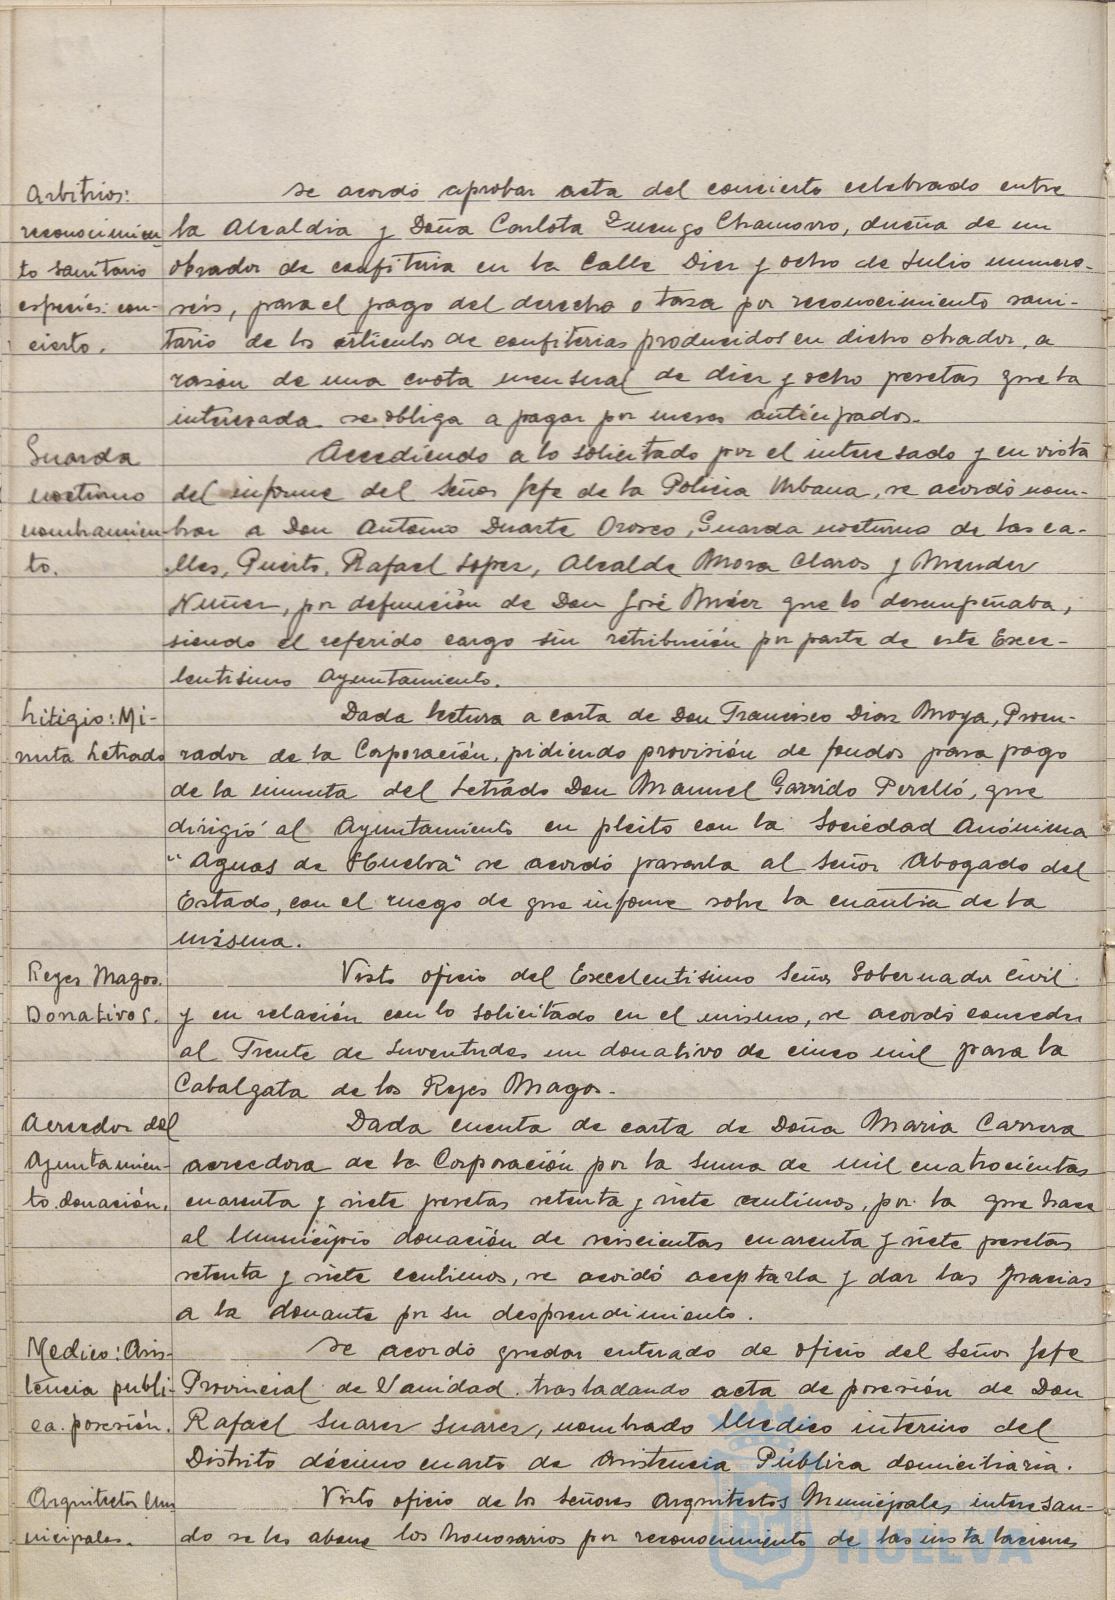 Arbitrios:
reconocimien-
to sanitario
especies: con-
cierto.
Se acordó aprobar acta del concierto celebrado entre
la Alcaldia y Doña Carlota Chamorro, dueña de un
obrador de confiteria en la Calle Diez y ocho de Julio numero
seis, para el pago del derecho o tasa por reconocimiento sani-
tario de los articulos de confiterias producidos en dicho obrador, a
razón de una cuota mensual de diez y ocho pesetas que la
interesada se obliga a pagar por meses anticipados.
Guarda
nocturno
nombramien-
to.
Accediendo a lo solicitado por el interesado y en vista
del informe del Señor Jefe de la Policia Urbana, se acordó nom-
brar a Don Antonio Duarte Orosco, Guarda nocturno de las ca-
lles, Puerto, Rafael Lopez, Alcalde Mora Claros y Mendez
Nuñez, por defunción de Don José que lo desempeñaba,
siendo el referido cargo sin retribución por parte de este Exce-
lentisimo Ayuntamiento.
Litigio: Mi-
nuta Letrado
Dada lectura a carta de Don Francisco Diaz Moya, Procu-
rador de la Corporación, pidiendo provisión de fondos para pago
de la minuta del Letrado Don Manuel Garrido Perelló, que
dirigió al Ayuntamiento en pleito con la Sociedad Anónima
"Aguas de Huelva" se acordó pasarla al Señor Abogado del
Estado, con el ruego de que informe sobre la cuantia de la
misma.
Reyes Magos.
Donativos.
Visto oficio del Excelentisimo Señor Gobernador Civil
y en relación con lo solicitado en el mismo, se acordó conceder
al Frente de Juventudes un donativo de cinco mil para la
Cabalgata de los Reyes Magos.
Acreedor del
Ayuntamien-
to donación.
Dada cuenta de carta de Doña Maria Carrera
acreedora de la Corporación por la suma de mil cuatrocientas
cuarenta y siete pesetas setenta y siete centimos, por la que hace
al Municipio donación de seiscientas cuarenta y siete pesetas
setenta y siete centimos, se acordó aceptarla y dar las gracias
a la donante por su desprendimiento.
Medico: Asis-
tencia publi-
ca. posesión.
Se acordó quedar enterado de oficio del Señor Jefe
Provincial de Sanidad trasladando acta de posesión de Don
Rafael Suarez Suarez, nombrado Medico interino del
Distrito décimo cuarto de Asistencia Pública domiciliaria.
Arquitectos Mu
nicipales.
Visto oficio de los Señores Arquitectos Municipales interesan-
do se les abone los honorarios por reconocimiento de las instalaciones
Ayuntamiento de
HUELVA